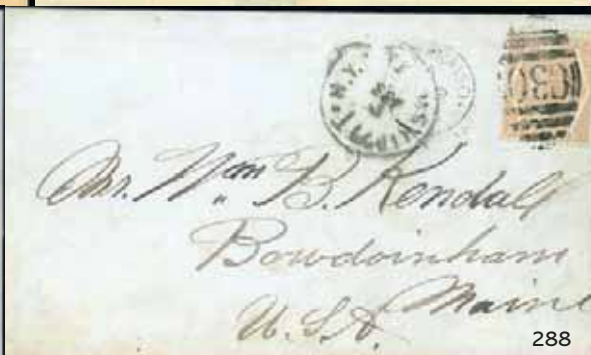 N.Y.
C30
Mr. Wm B. Kendall
Bowdoinham
Maine
U.S.A.
288